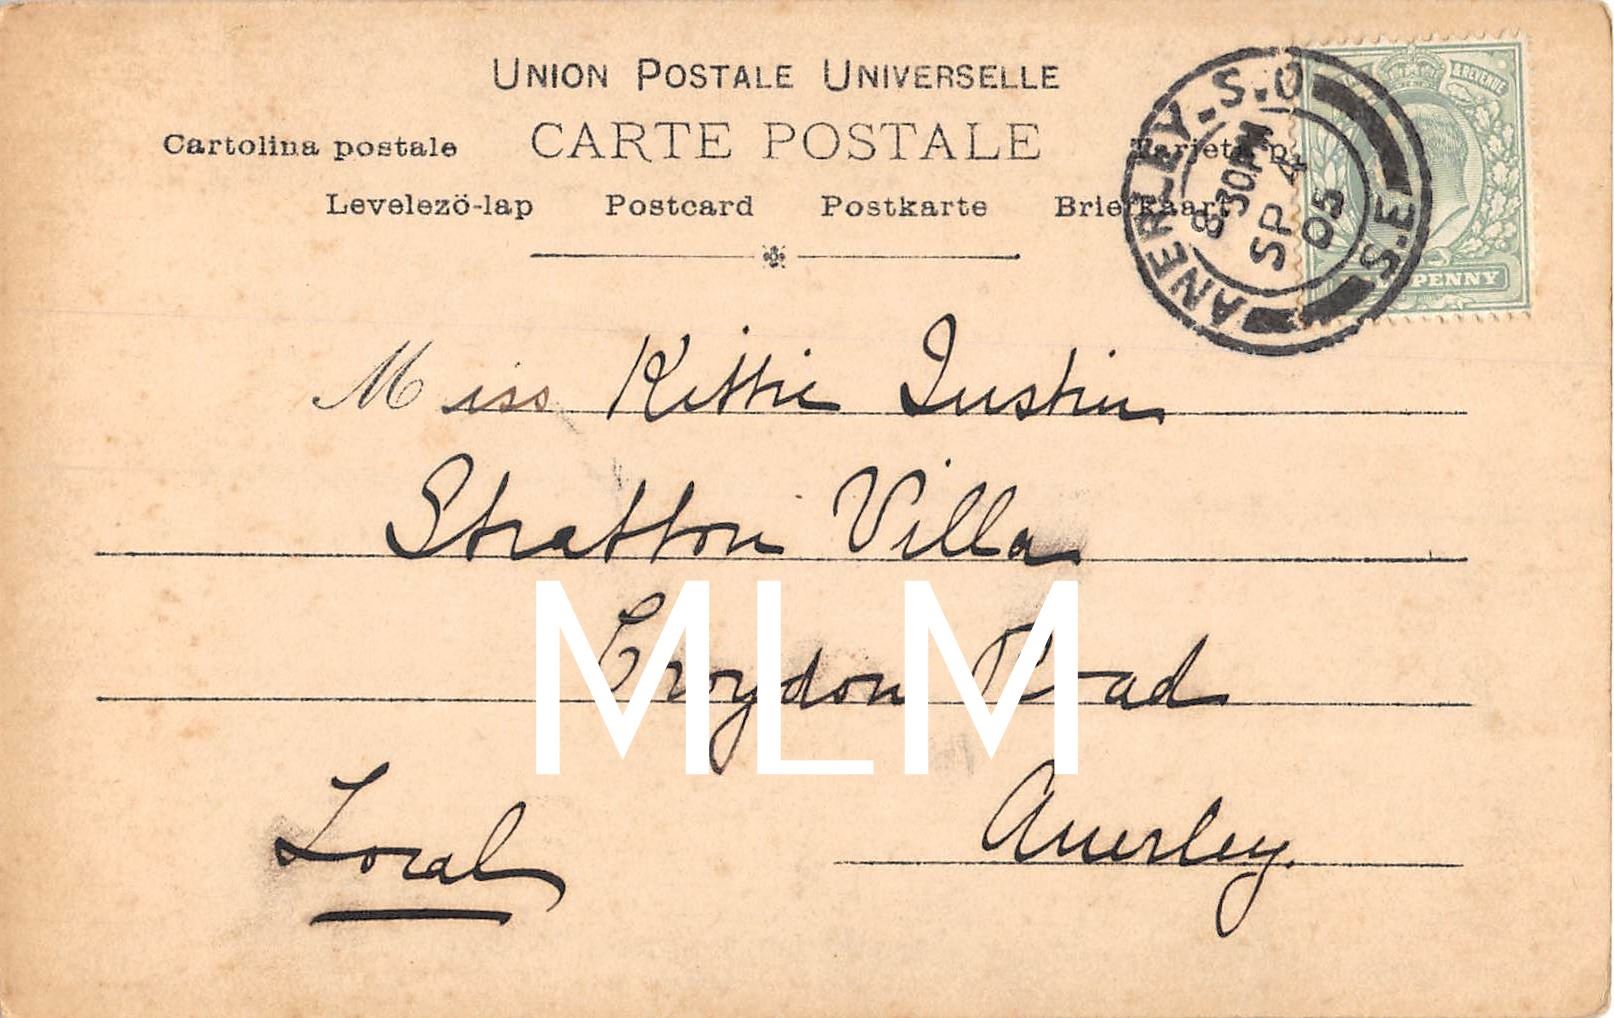 UNION POSTALE UNIVERSELLE
CARTE POSTALE
Cartolina postale
Levelezö-lap Postcard Postkarte Briefkaart
ANERLEY-S.O
S.E
8 30PM
SP 4
05
& REVENUE
PENNY
Miss Kittie Justin
Stratton Villa
Croydon Road
Anerley.
Local
MLM